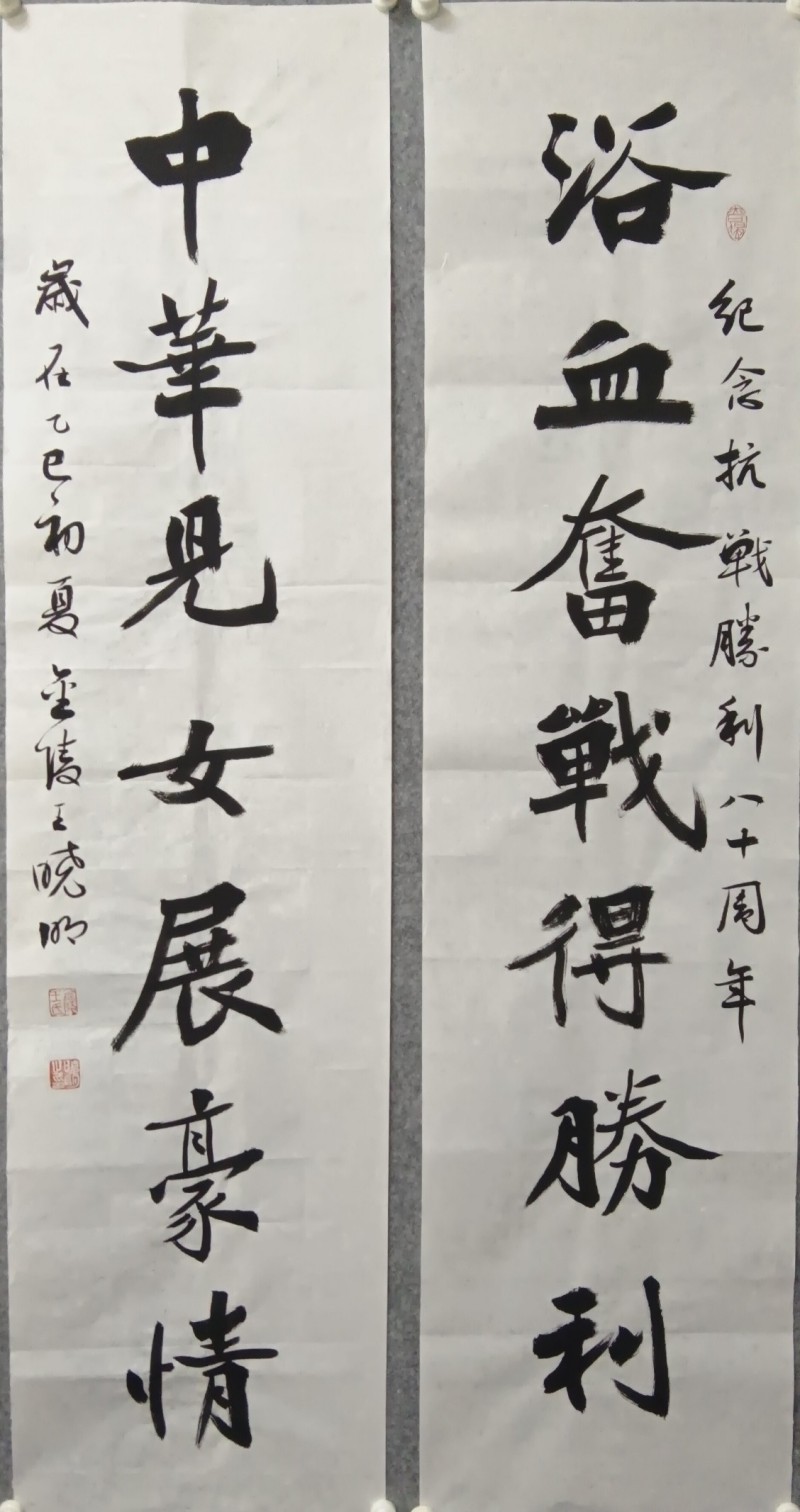 紀念抗戰勝利八十周年
浴血奮戰得勝利
中華兒女展豪情
歲在乙巳初夏金陵王曉明